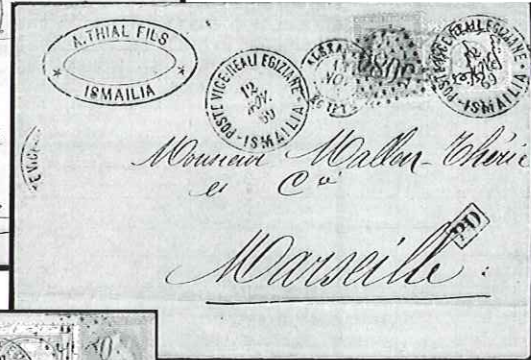 A. THIAL FILS
ISMAILIA
POSTE VICE-REALI EGIZIANE
12
NOV.
69
ISMAILIA
POSTE VICE-REALI EGIZIANE
69
ISMAILIA
5080
Monsieur Mallen-Thérie
et Cie
PD
Marseille